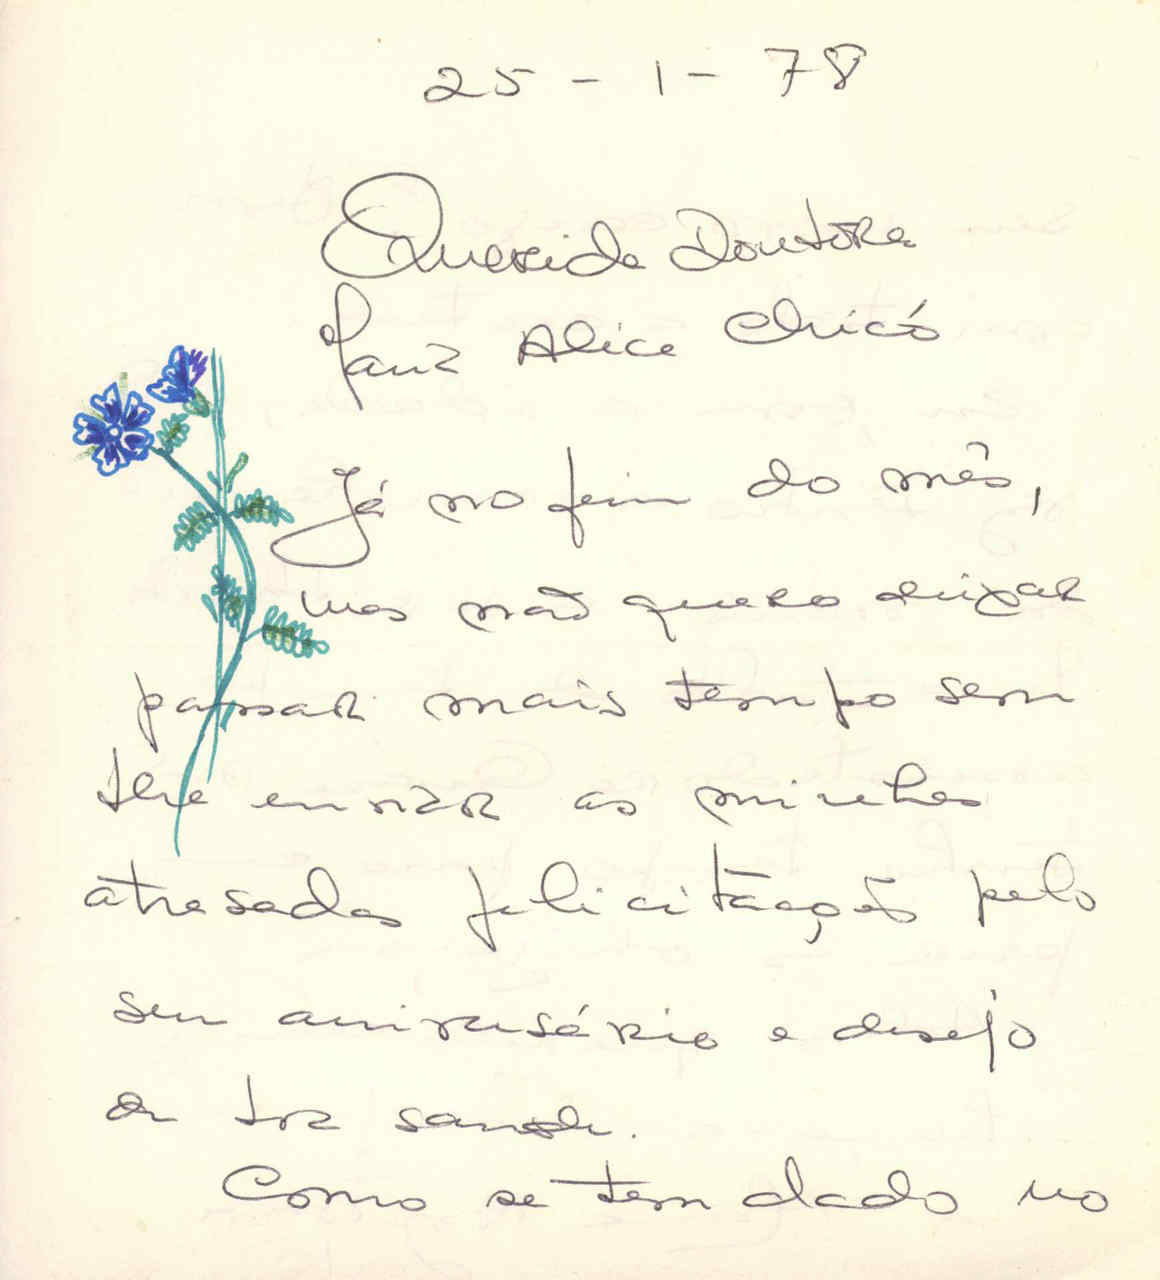 25-1-78
Querida Doutora
Maria Alice Chicó
Já no fim do mês,
mas não quero deixar
passar mais tempo sem
lhe enviar as minhas
atrasadas felicitações pelo
seu aniversário e desejo
de boa saude.
Como se tem dado no